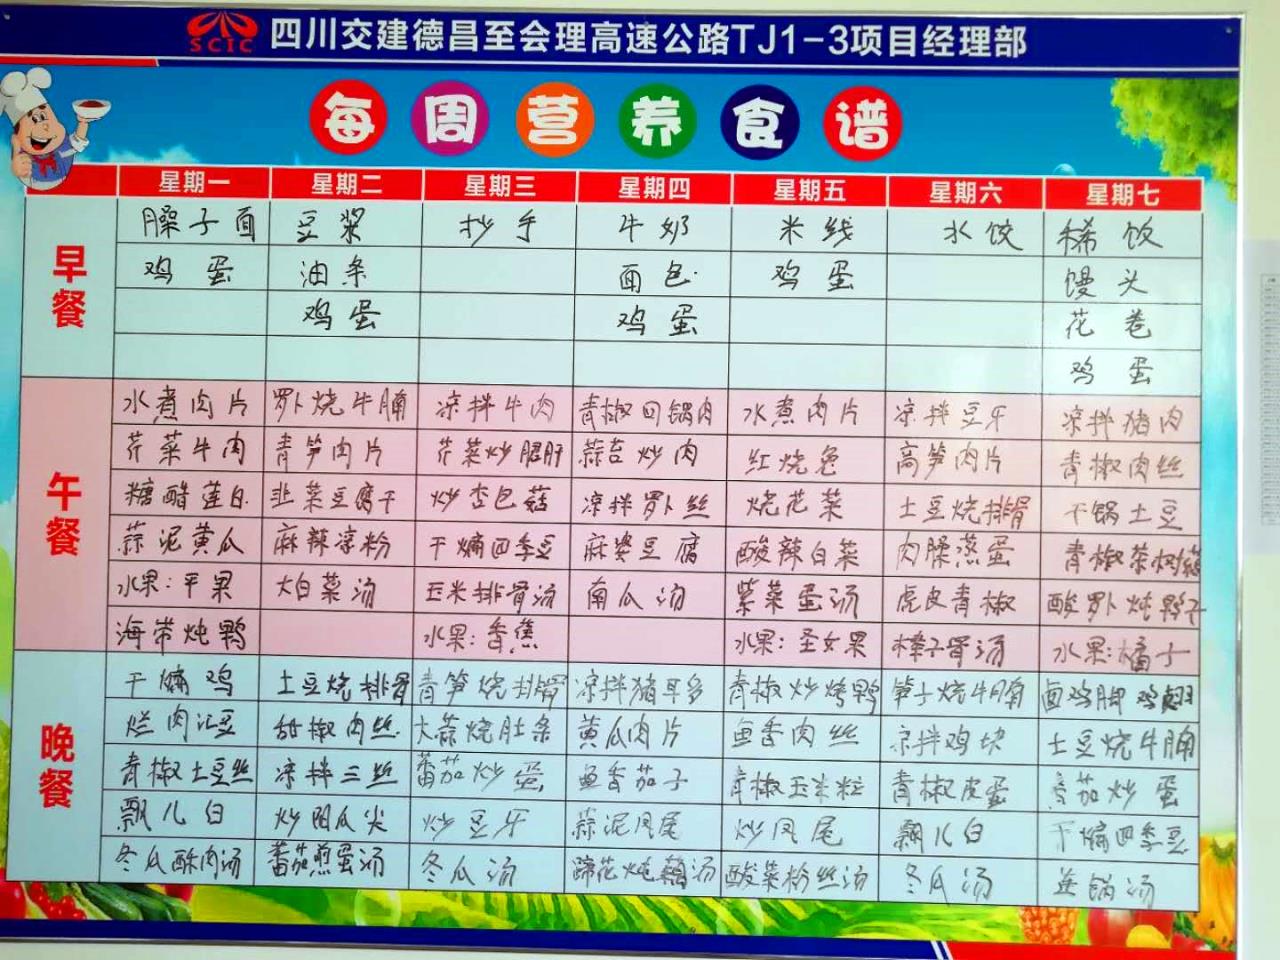 SCIC 四川交建德昌至会理高速公路TJ1-3项目经理部
每周营养食谱
星期一 星期二 星期三 星期四 星期五 星期六 星期七
早餐
臊子面 豆浆 抄手 牛奶 米线 水饺 稀饭
鸡蛋 油条 面包 鸡蛋 馒头
鸡蛋 鸡蛋 花卷
鸡蛋
午餐
水煮肉片 罗卜烧牛腩 凉拌牛肉 青椒回锅肉 水煮肉片 凉拌豆牙 凉拌猪肉
芹菜牛肉 青笋肉片 芹菜炒 蒜苔炒肉 红烧兔 高笋肉片 青椒肉丝
糖醋莲白 韭菜豆腐干 炒杏包菇 凉拌罗卜丝 烧花菜 土豆烧排骨 干锅土豆
蒜泥黄瓜 麻辣凉粉 干煸四季豆 麻婆豆腐 酸辣白菜 肉臊蒸蛋 青椒茶树菇
水果:平果 大白菜汤 玉米排骨汤 南瓜汤 紫菜蛋汤 虎皮青椒 酸罗卜炖鸭子
海带炖鸭 水果:香蕉 水果:圣女果 棒子骨汤 水果:橘子
晚餐
干煸鸡 土豆烧排骨 青笋烧排骨 凉拌猪耳多 青椒炒烤鸭 笋子烧牛腩 卤鸡脚 鸡翅
烂肉汇豆 甜椒肉丝 大蒜烧肚条 黄瓜肉片 鱼香肉丝 凉拌鸡块 土豆烧牛腩
青椒土豆丝 凉拌三丝 蕃茄炒蛋 鱼香茄子 青椒玉米粒 青椒皮蛋 蕃茄炒蛋
瓢儿白 炒阳瓜尖 炒豆牙 蒜泥凤尾 炒凤尾 瓢儿白 干煸四季豆
冬瓜酥肉汤 蕃茄煎蛋汤 冬瓜汤 蹄花炖藕汤 酸菜粉丝汤 冬瓜汤 连锅汤